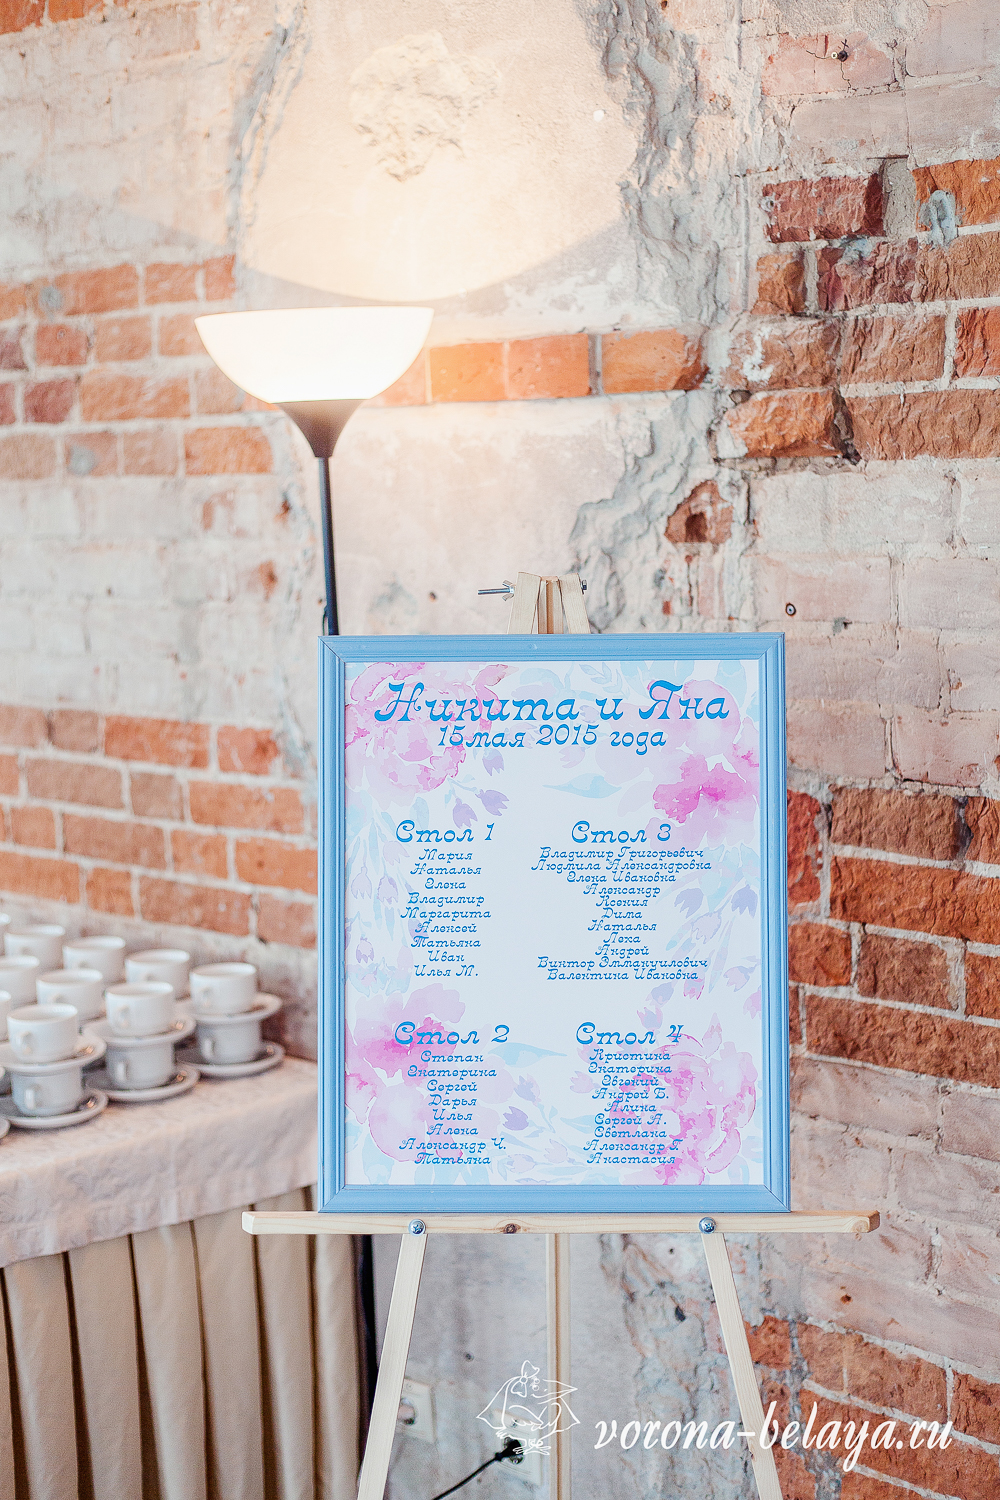 Никита и Яна
15 мая 2015 года
Стол 1
Мария
Наталья
Елена
Владимир
Маргарита
Алексей
Татьяна
Иван
Илья М.
Стол 2
Степан
Екатерина
Сергей
Дарья
Илья
Алена
Александр Ч.
Татьяна
Стол 3
Владимир Григорьевич
Людмила Александровна
Елена Ивановна
Александр
Ксения
Дима
Наталья
Леха
Андрей
Виктор Эммануилович
Валентина Ивановна
Стол 4
Кристина
Екатерина
Евгений
Андрей Б.
Алина
Сергей А.
Светлана
Александр Г.
Анастасия
vorona-belaya.ru